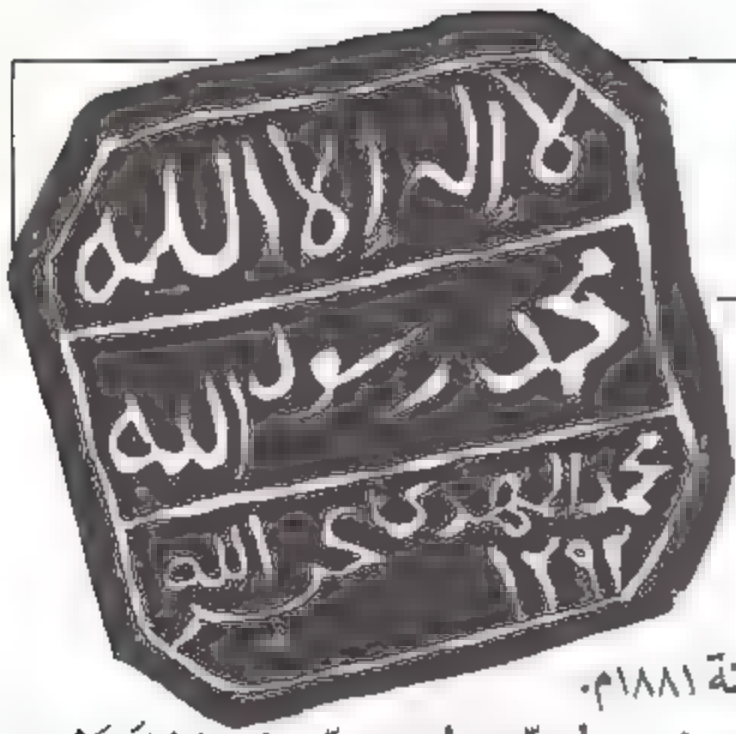 لا اله الا الله
محمد رسول الله
محمد المهدى
الله ١٢٩٢
١٨٨١م.